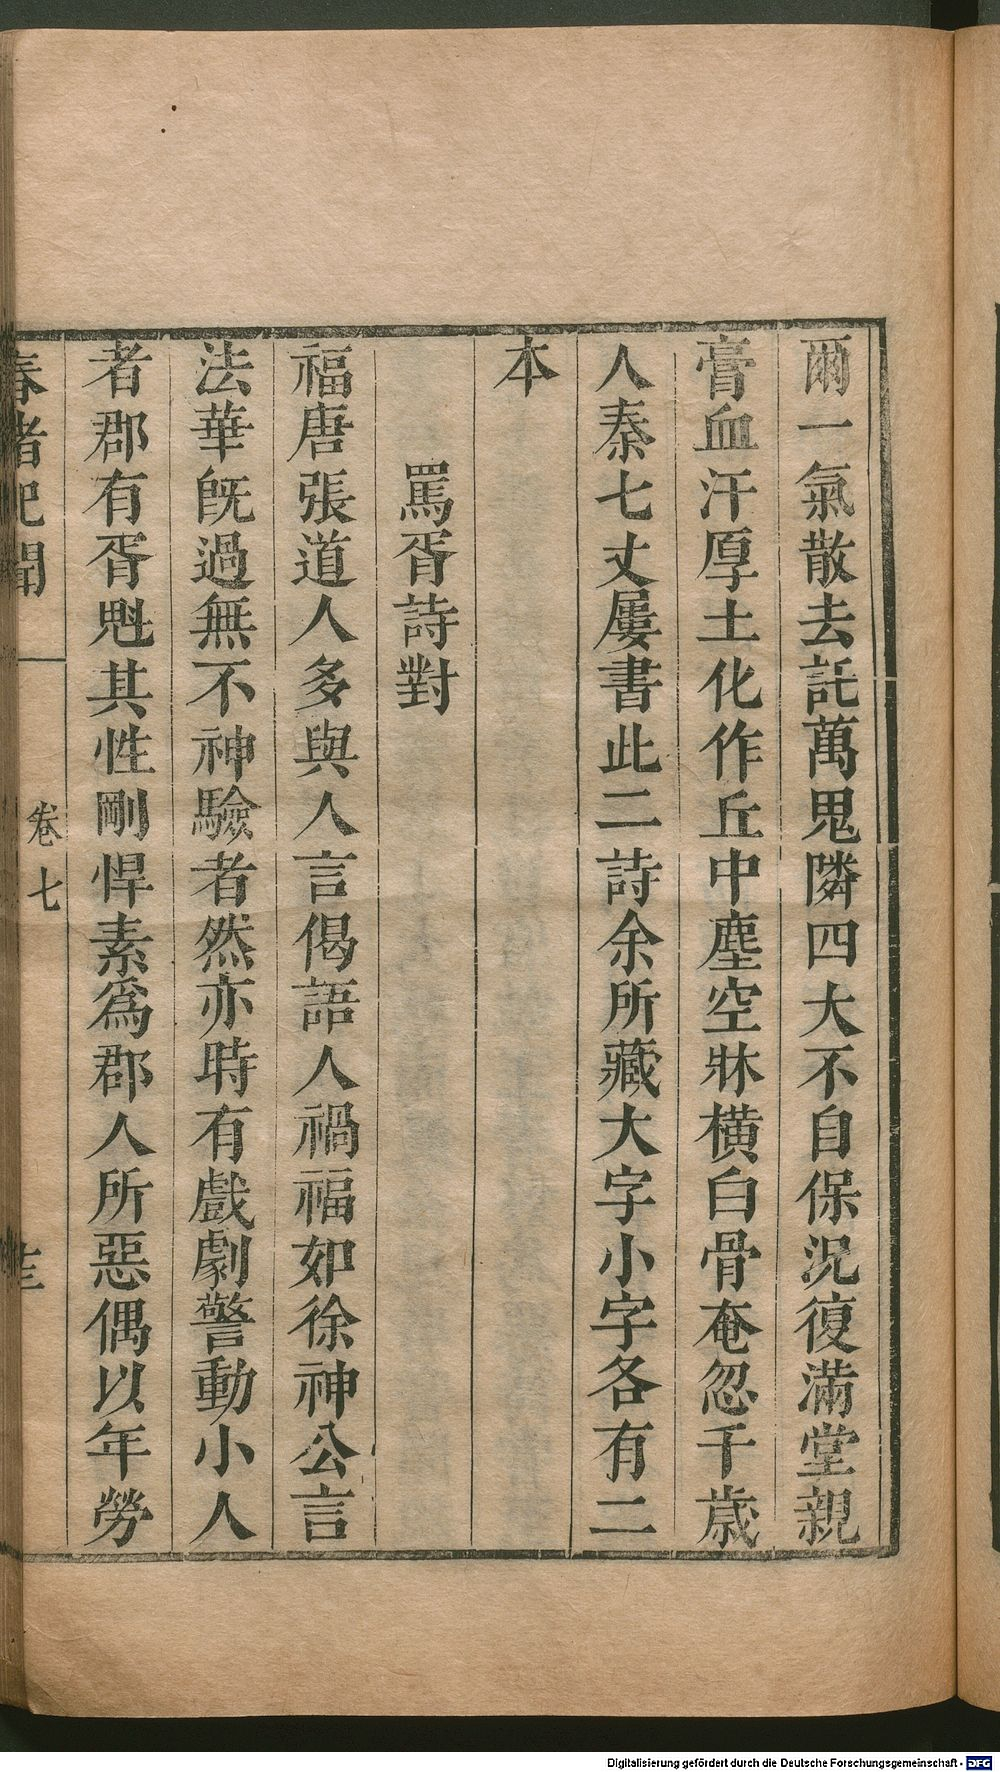 爾一氣散去託萬鬼隣四大不自保況復滿堂親
膏血汗厚土化作丘中塵空牀橫白骨奄忽千歳
人秦七丈屢書此二詩余所藏大字小字各有二
本
罵胥詩對
福唐張道人多與人言偈語人禍福如徐神公言
法華旣過無不神驗者然亦時有戲劇警動小人
者郡有胥魁其性剛悍素爲郡人所惡偶以年勞
春渚紀聞
卷七
Digitalisierung gefördert durch die Deutsche Forschungsgemeinschaft - DFG